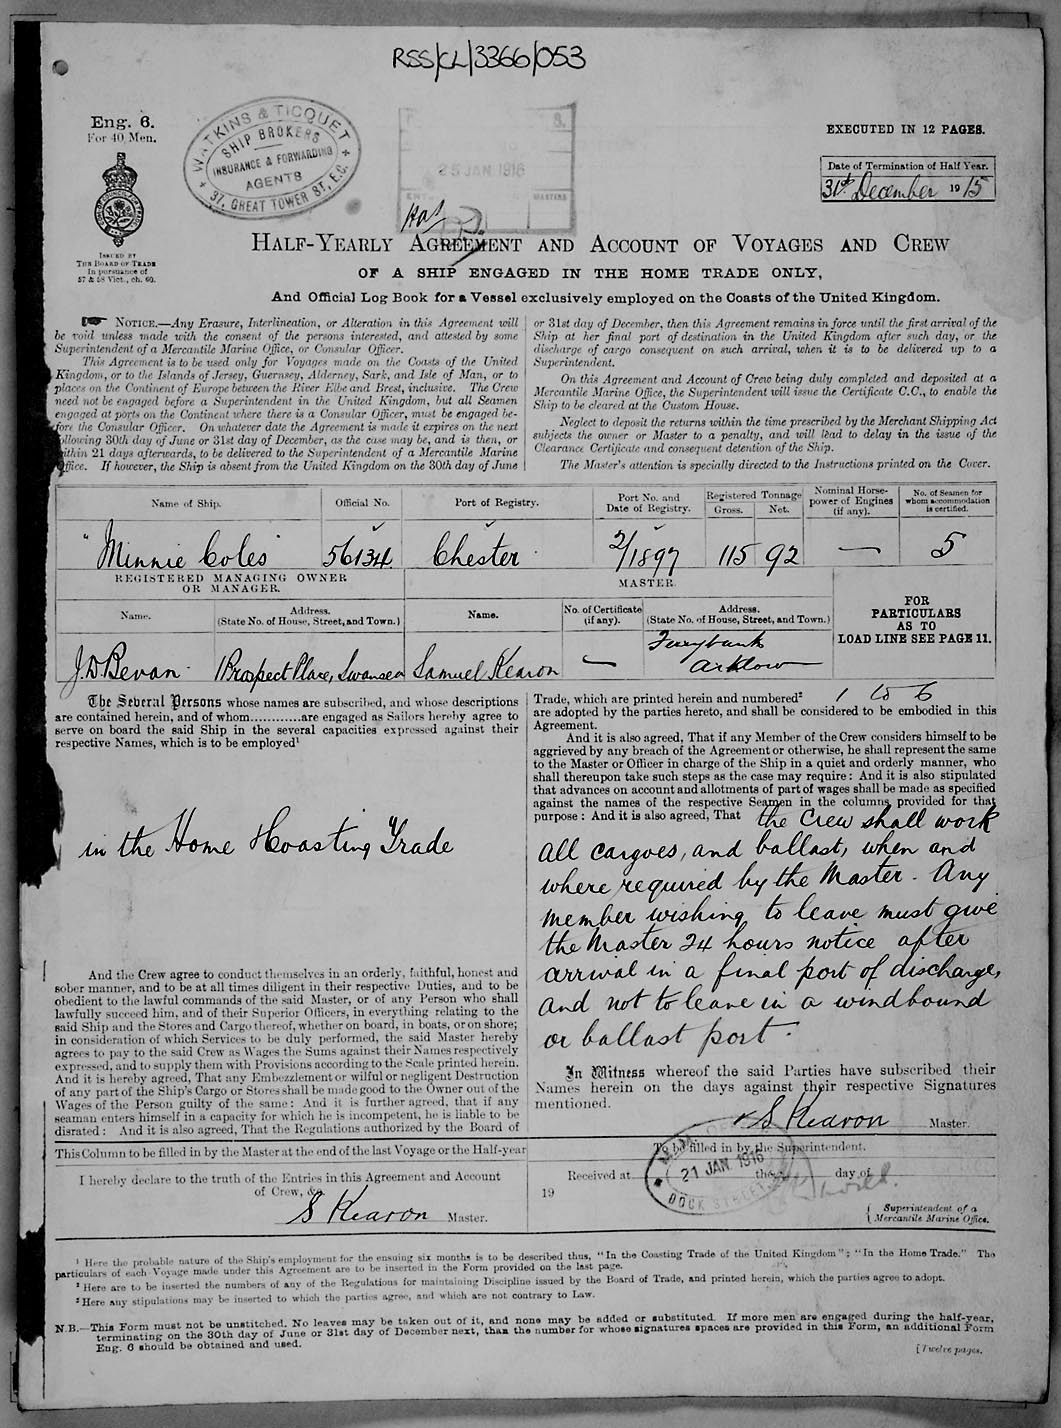 RSS/CL/3366/053
Eng. 6.
For 40 Men.
WATKINS & TICQUET
SHIP BROKERS
INSURANCE & FORWARDING
AGENTS
37, GREAT TOWER ST, E.C.
25 JAN 1916
EXECUTED IN 12 PAGES.
Date of Termination of Half Year.
31st December 1915
ISSUED BY
THE BOARD OF TRADE
In pursuance of
57 & 58 Vict., ch. 60.
HALF-YEARLY AGREEMENT AND ACCOUNT OF VOYAGES AND CREW
OF A SHIP ENGAGED IN THE HOME TRADE ONLY,
And Official Log Book for a Vessel exclusively employed on the Coasts of the United Kingdom.
NOTICE.—Any Erasure, Interlineation, or Alteration in this Agreement will
be void unless made with the consent of the persons interested, and attested by some
Superintendent of a Mercantile Marine Office, or Consular Officer.
This Agreement is to be used only for Voyages made on the Coasts of the United
Kingdom, or to the Islands of Jersey, Guernsey, Alderney, Sark, and Isle of Man, or to
places on the Continent of Europe between the River Elbe and Brest, inclusive. The Crew
need not be engaged before a Superintendent in the United Kingdom, but all Seamen
engaged at ports on the Continent where there is a Consular Officer, must be engaged be-
fore the Consular Officer. On whatever date the Agreement is made it expires on the next
following 30th day of June or 31st day of December, as the case may be, and is then, or
within 21 days afterwards, to be delivered to the Superintendent of a Mercantile Marine
Office. If however, the Ship is absent from the United Kingdom on the 30th day of June
or 31st day of December, then this Agreement remains in force until the first arrival of the
Ship at her final port of destination in the United Kingdom after such day, or the
discharge of cargo consequent on such arrival, when it is to be delivered up to a
Superintendent.
On this Agreement and Account of Crew being duly completed and deposited at a
Mercantile Marine Office, the Superintendent will issue the Certificate C.C., to enable the
Ship to be cleared at the Custom House.
Neglect to deposit the returns within the time prescribed by the Merchant Shipping Act
subjects the owner or Master to a penalty, and will lead to delay in the issue of the
Clearance Certificate and consequent detention of the Ship.
The Master's attention is specially directed to the Instructions printed on the Cover.
Name of Ship.
Official No.
Port of Registry.
Port No. and
Date of Registry.
Registered Tonnage
Gross. Net.
Nominal Horse-
power of Engines
(if any).
No. of Seamen for
whom accommodation
is certified.
"Minnie Coles" 56134 Chester 2/1897 115 92 — 5
REGISTERED MANAGING OWNER
OR MANAGER.
MASTER.
Name.
Address.
(State No. of House, Street, and Town.)
Name.
No. of Certificate
(if any).
Address.
(State No. of House, Street, and Town.)
FOR
PARTICULARS
AS TO
LOAD LINE SEE PAGE 11.
J.D. Bevan 1 Prospect Place, Swansea Samuel Kearon — Ferrybank
Arklow
The Several Persons whose names are subscribed, and whose descriptions
are contained herein, and of whom............are engaged as Sailors hereby agree to
serve on board the said Ship in the several capacities expressed against their
respective Names, which is to be employed¹
in the Home Coasting Trade
And the Crew agree to conduct themselves in an orderly, faithful, honest and
sober manner, and to be at all times diligent in their respective Duties, and to be
obedient to the lawful commands of the said Master, or of any Person who shall
lawfully succeed him, and of their Superior Officers, in everything relating to the
said Ship and the Stores and Cargo thereof, whether on board, in boats, or on shore;
in consideration of which Services to be duly performed, the said Master hereby
agrees to pay to the said Crew as Wages the Sums against their Names respectively
expressed, and to supply them with Provisions according to the Scale printed herein.
And it is hereby agreed, That any Embezzlement or wilful or negligent Destruction
of any part of the Ship's Cargo or Stores shall be made good to the Owner out of the
Wages of the Person guilty of the same: And it is further agreed, that if any
seaman enters himself in a capacity for which he is incompetent, he is liable to be
disrated: And it is also agreed, That the Regulations authorized by the Board of
Trade, which are printed herein and numbered² 1 to 6
are adopted by the parties hereto, and shall be considered to be embodied in this
Agreement.
And it is also agreed, That if any Member of the Crew considers himself to be
aggrieved by any breach of the Agreement or otherwise, he shall represent the same
to the Master or Officer in charge of the Ship in a quiet and orderly manner, who
shall thereupon take such steps as the case may require: And it is also stipulated
that advances on account and allotments of part of wages shall be made as specified
against the names of the respective Seamen in the columns provided for that
purpose: And it is also agreed, That the crew shall work
all cargoes, and ballast, when and
where required by the Master. Any
member wishing to leave must give
the Master 24 hours notice after
arrival in a final port of discharge,
and not to leave in a windbound
or ballast port.
In Witness whereof the said Parties have subscribed their
Names herein on the days against their respective Signatures
mentioned.
x S Kearon Master.
This Column to be filled in by the Master at the end of the last Voyage or the Half-year
I hereby declare to the truth of the Entries in this Agreement and Account
of Crew, &c.
S Kearon Master.
To be filled in by the Superintendent.
Received at the day of
19
21 JAN 1916
DOCK STREET
Superintendent of a
Mercantile Marine Office.
¹ Here the probable nature of the Ship's employment for the ensuing six months is to be described thus, "In the Coasting Trade of the United Kingdom"; "In the Home Trade." The
particulars of each Voyage made under this Agreement are to be inserted in the Form provided on the last page.
² Here are to be inserted the numbers of any of the Regulations for maintaining Discipline issued by the Board of Trade, and printed herein, which the parties agree to adopt.
³ Here any stipulations may be inserted to which the parties agree, and which are not contrary to Law.
N.B.—This Form must not be unstitched. No leaves may be taken out of it, and none may be added or substituted. If more men are engaged during the half-year,
terminating on the 30th day of June or 31st day of December next, than the number for whose signatures spaces are provided in this Form, an additional Form
Eng. 6 should be obtained and used.
[Twelve pages.